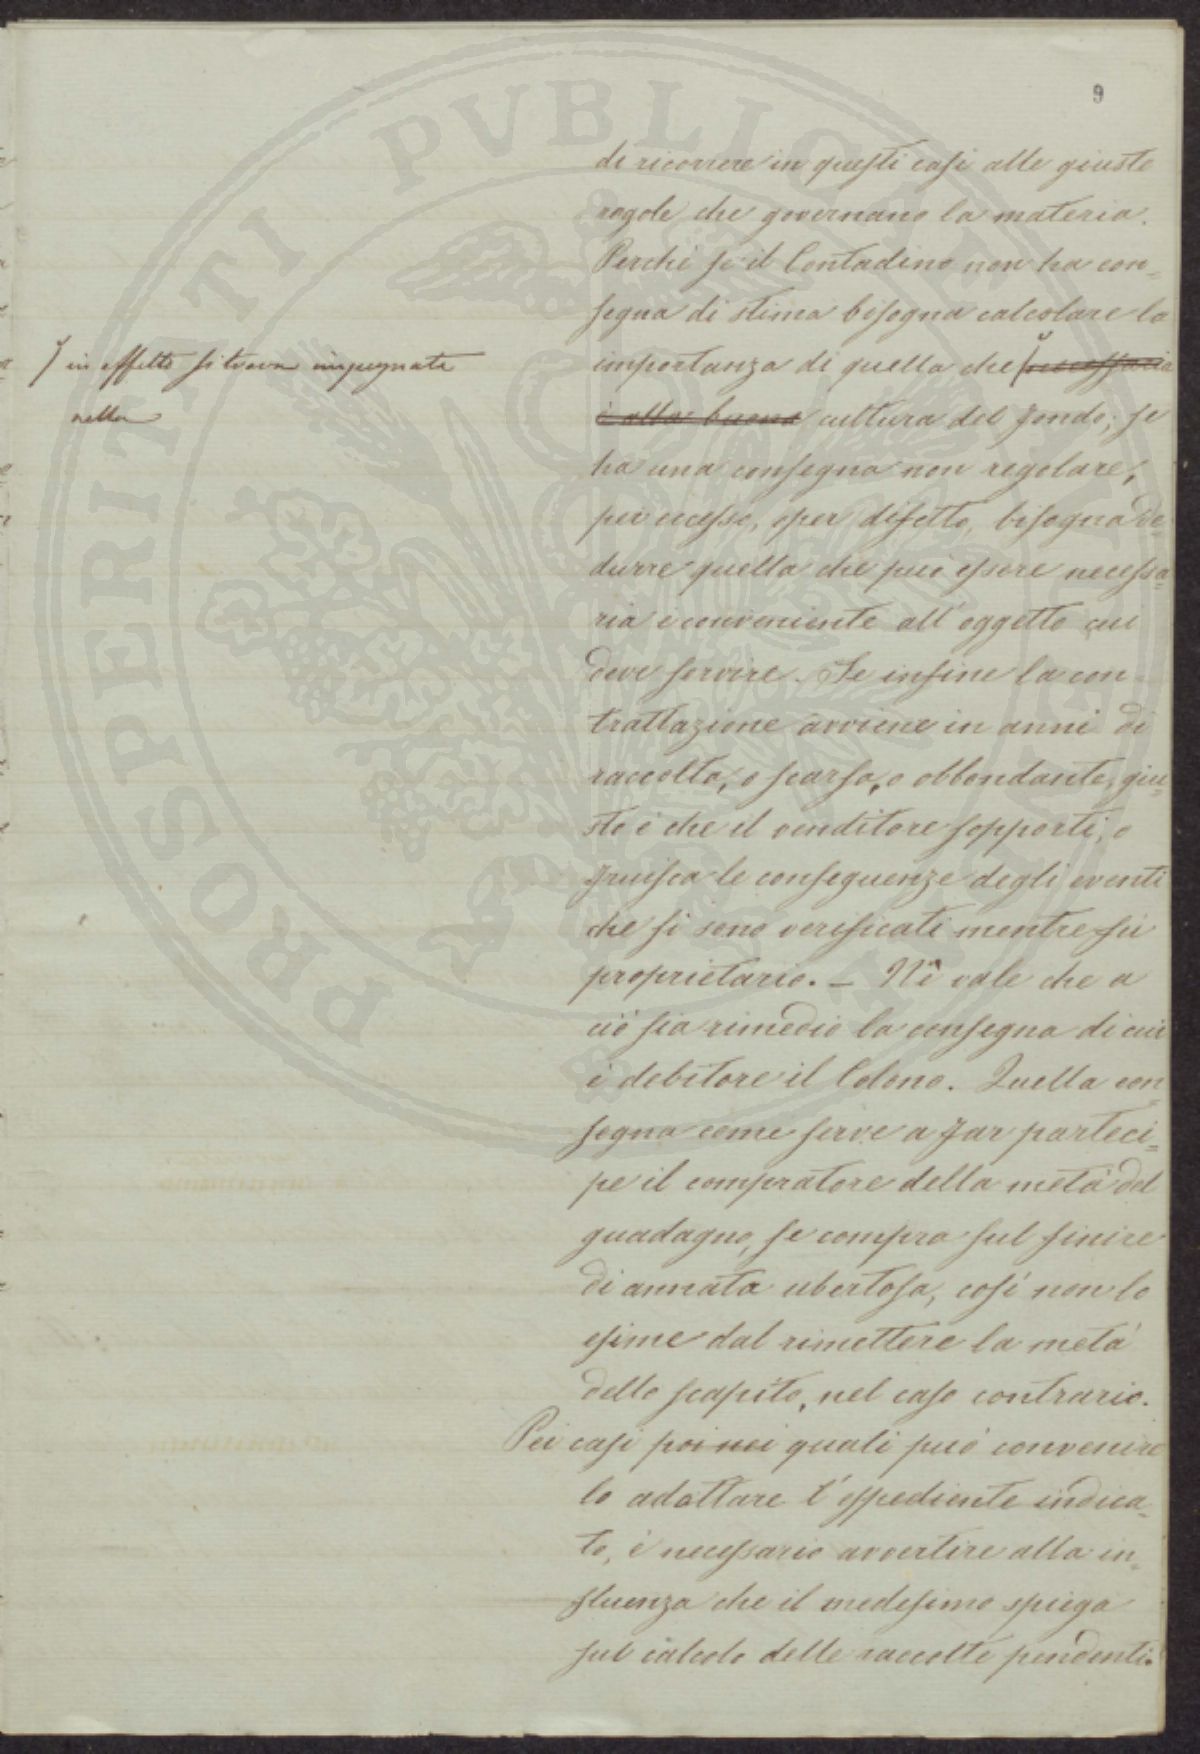 9
di ricorrere in questi casi alle giuste
regole che governano la materia.
Perchè se il Contadino non ha con=
segna di stima bisogna calcolare la
importanza di quella che necessaria
è alla buona cultura del fondo; se
ƒ in effetto si trova impegnata
nella
ha una consegna non regolare,
per eccesso, o per difetto, bisogna de=
durre quella che può essere necessa=
ria e conveniente all'oggetto cui
deve servire. Se infine la con=
trattazione avviene in anni di
raccolta, o scarsa, o abbondante, giu=
sto è che il venditore sopporti, o
fruisca le conseguenze degli eventi
che si sono verificati mentre fu
proprietario. — Nè vale che a
ciò sia rimedio la consegna di cui
è debitore il Colono. Quella con=
segna come serve a far parteci=
pe il compratore della metà del
guadagno, se compra sul finire
di annata ubertosa, così non lo
esime dal rimettere la metà
dello scapito, nel caso contrario.
Pei casi poi nei quali può convenire
lo adottare l'espediente indica=
to, è necessario avvertire alla in=
fluenza che il medesimo spiega
sul calcolo delle raccolte pendenti.
PROSPERITATI PVBLICAE